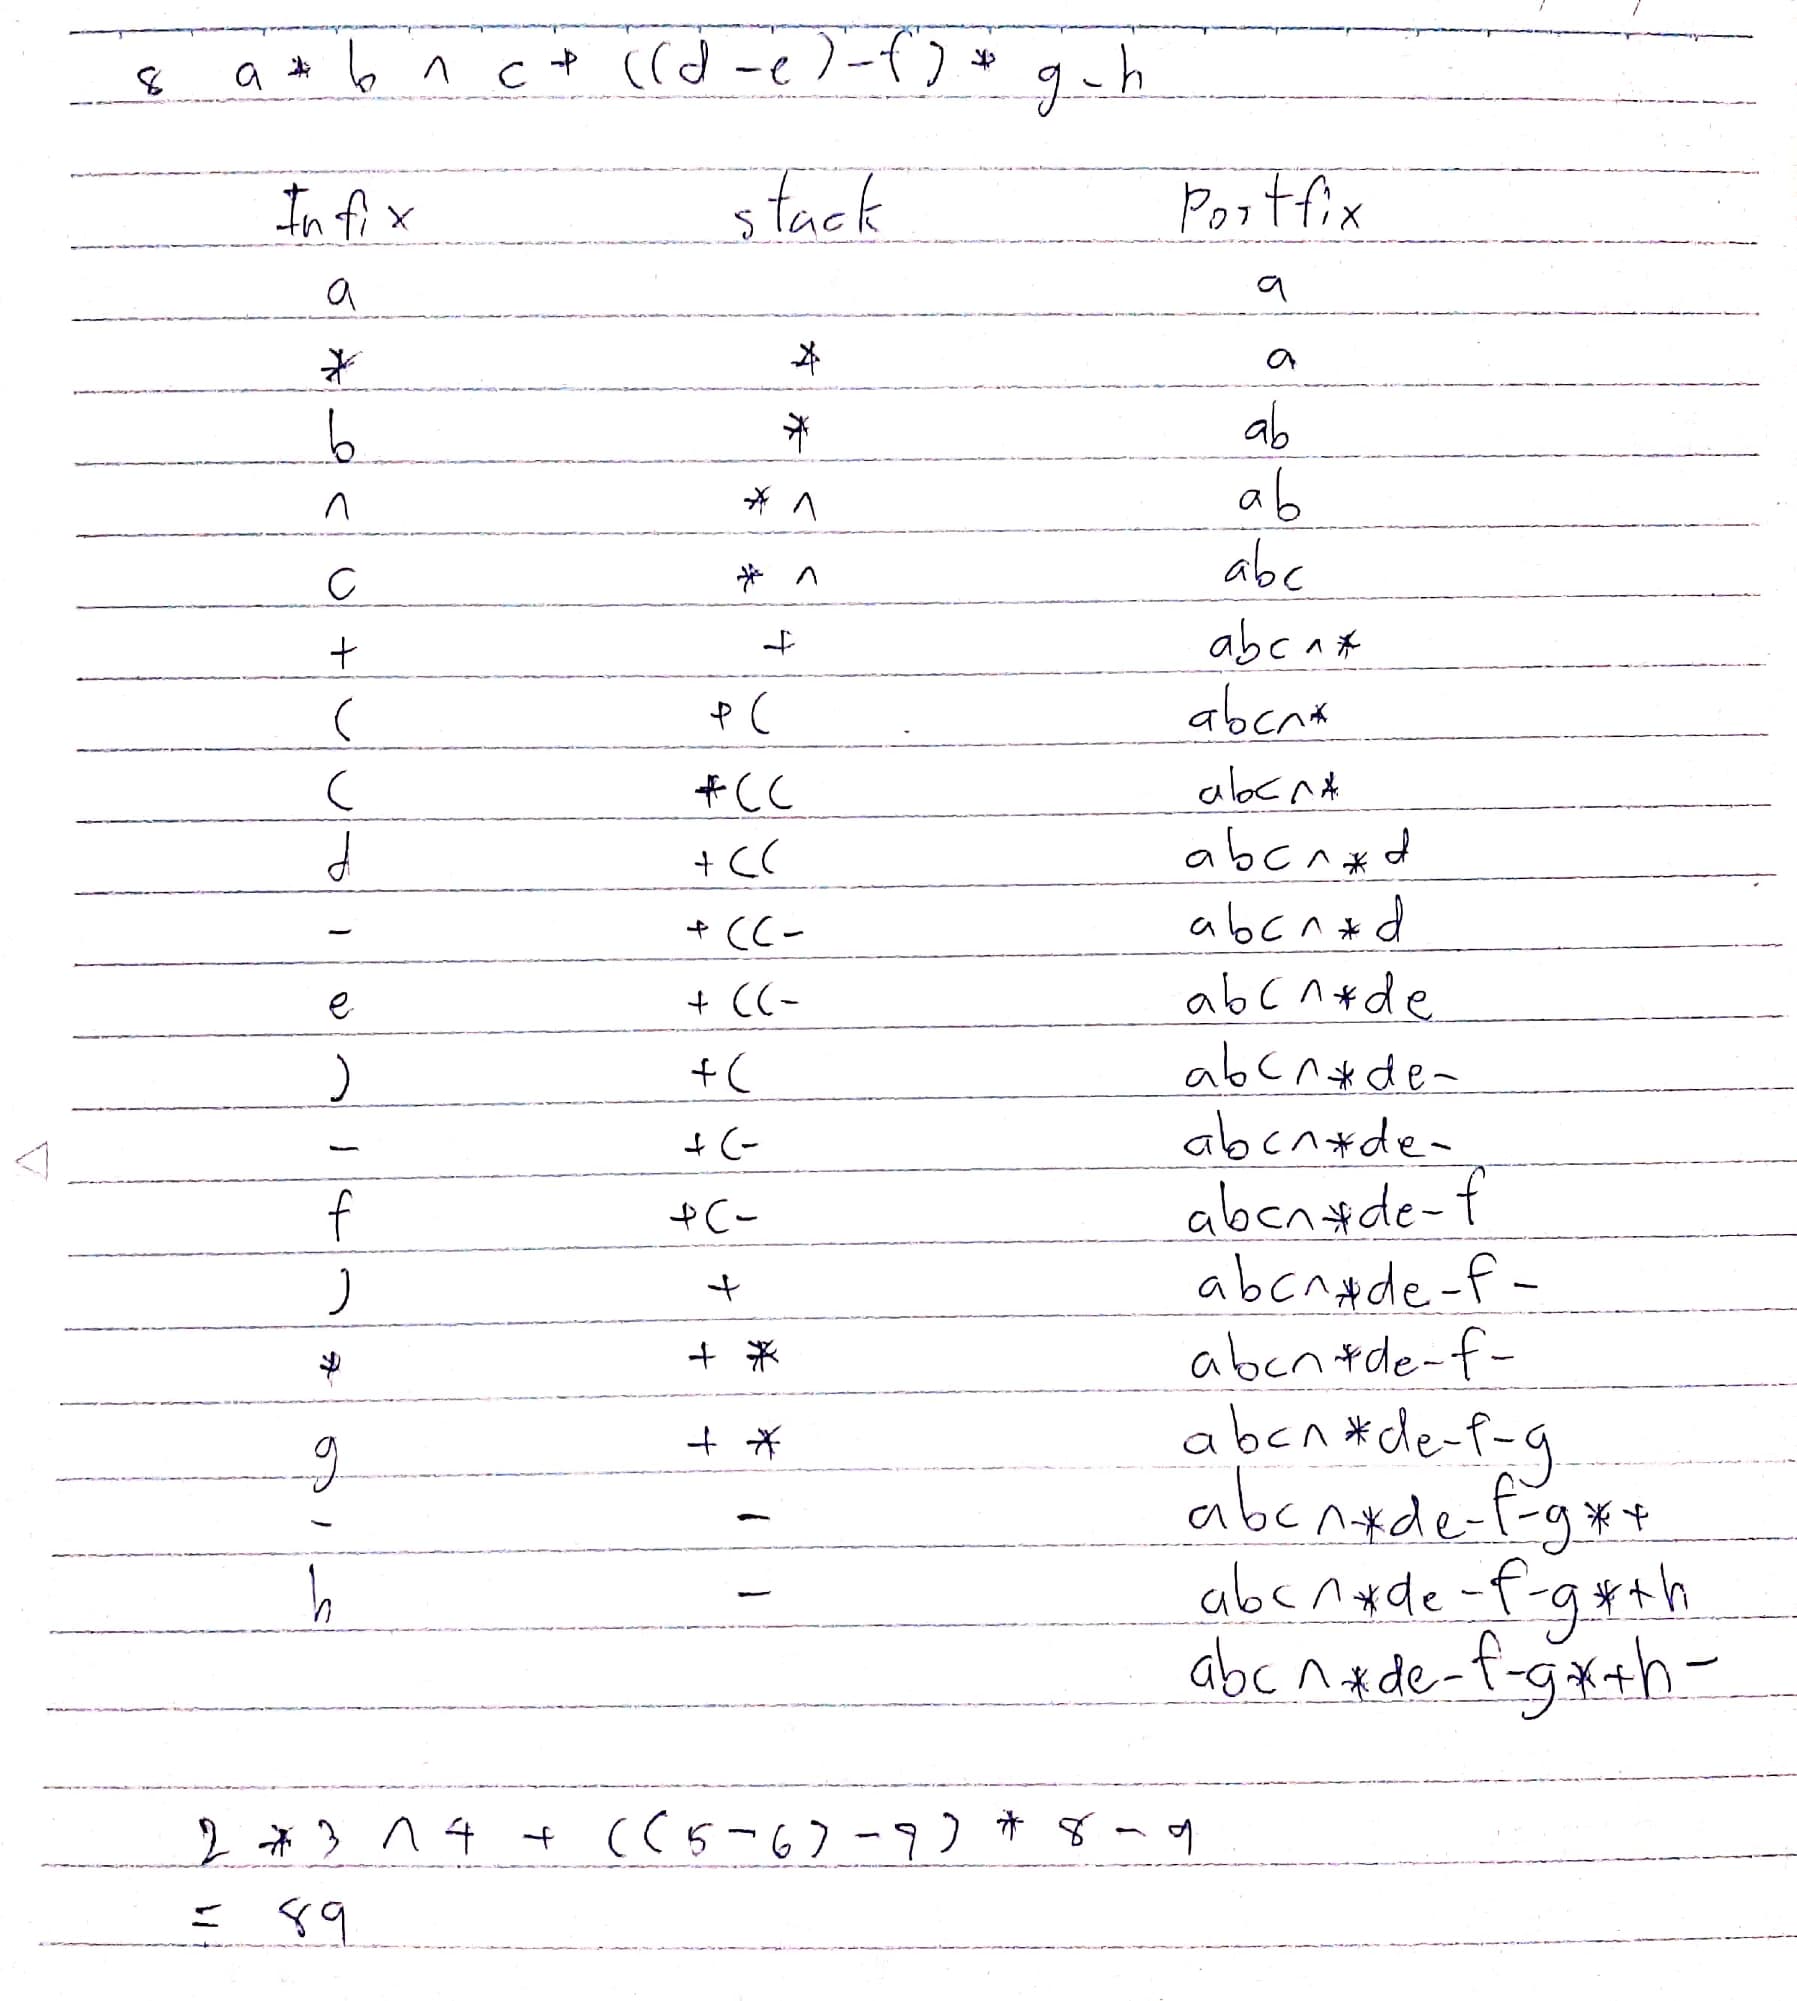 8 a * b ^ c + ((d - e) - f) * g - h
Infix stack Postfix
a a
* * a
b * ab
^ * ^ ab
c * ^ abc
+ + abc^*
( +( abc^*
( +(( abc^*
d +(( abc^*d
- +((- abc^*d
e +((- abc^*de
) +( abc^*de-
- +(- abc^*de-
f +(- abc^*de-f
) + abc^*de-f-
* + * abc^*de-f-
g + * abc^*de-f-g
- - abc^*de-f-g*+
h - abc^*de-f-g*+h
abc^*de-f-g*+h-
2 * 3 ^ 4 + ((5-6)-9) * 8 - 9
= 89